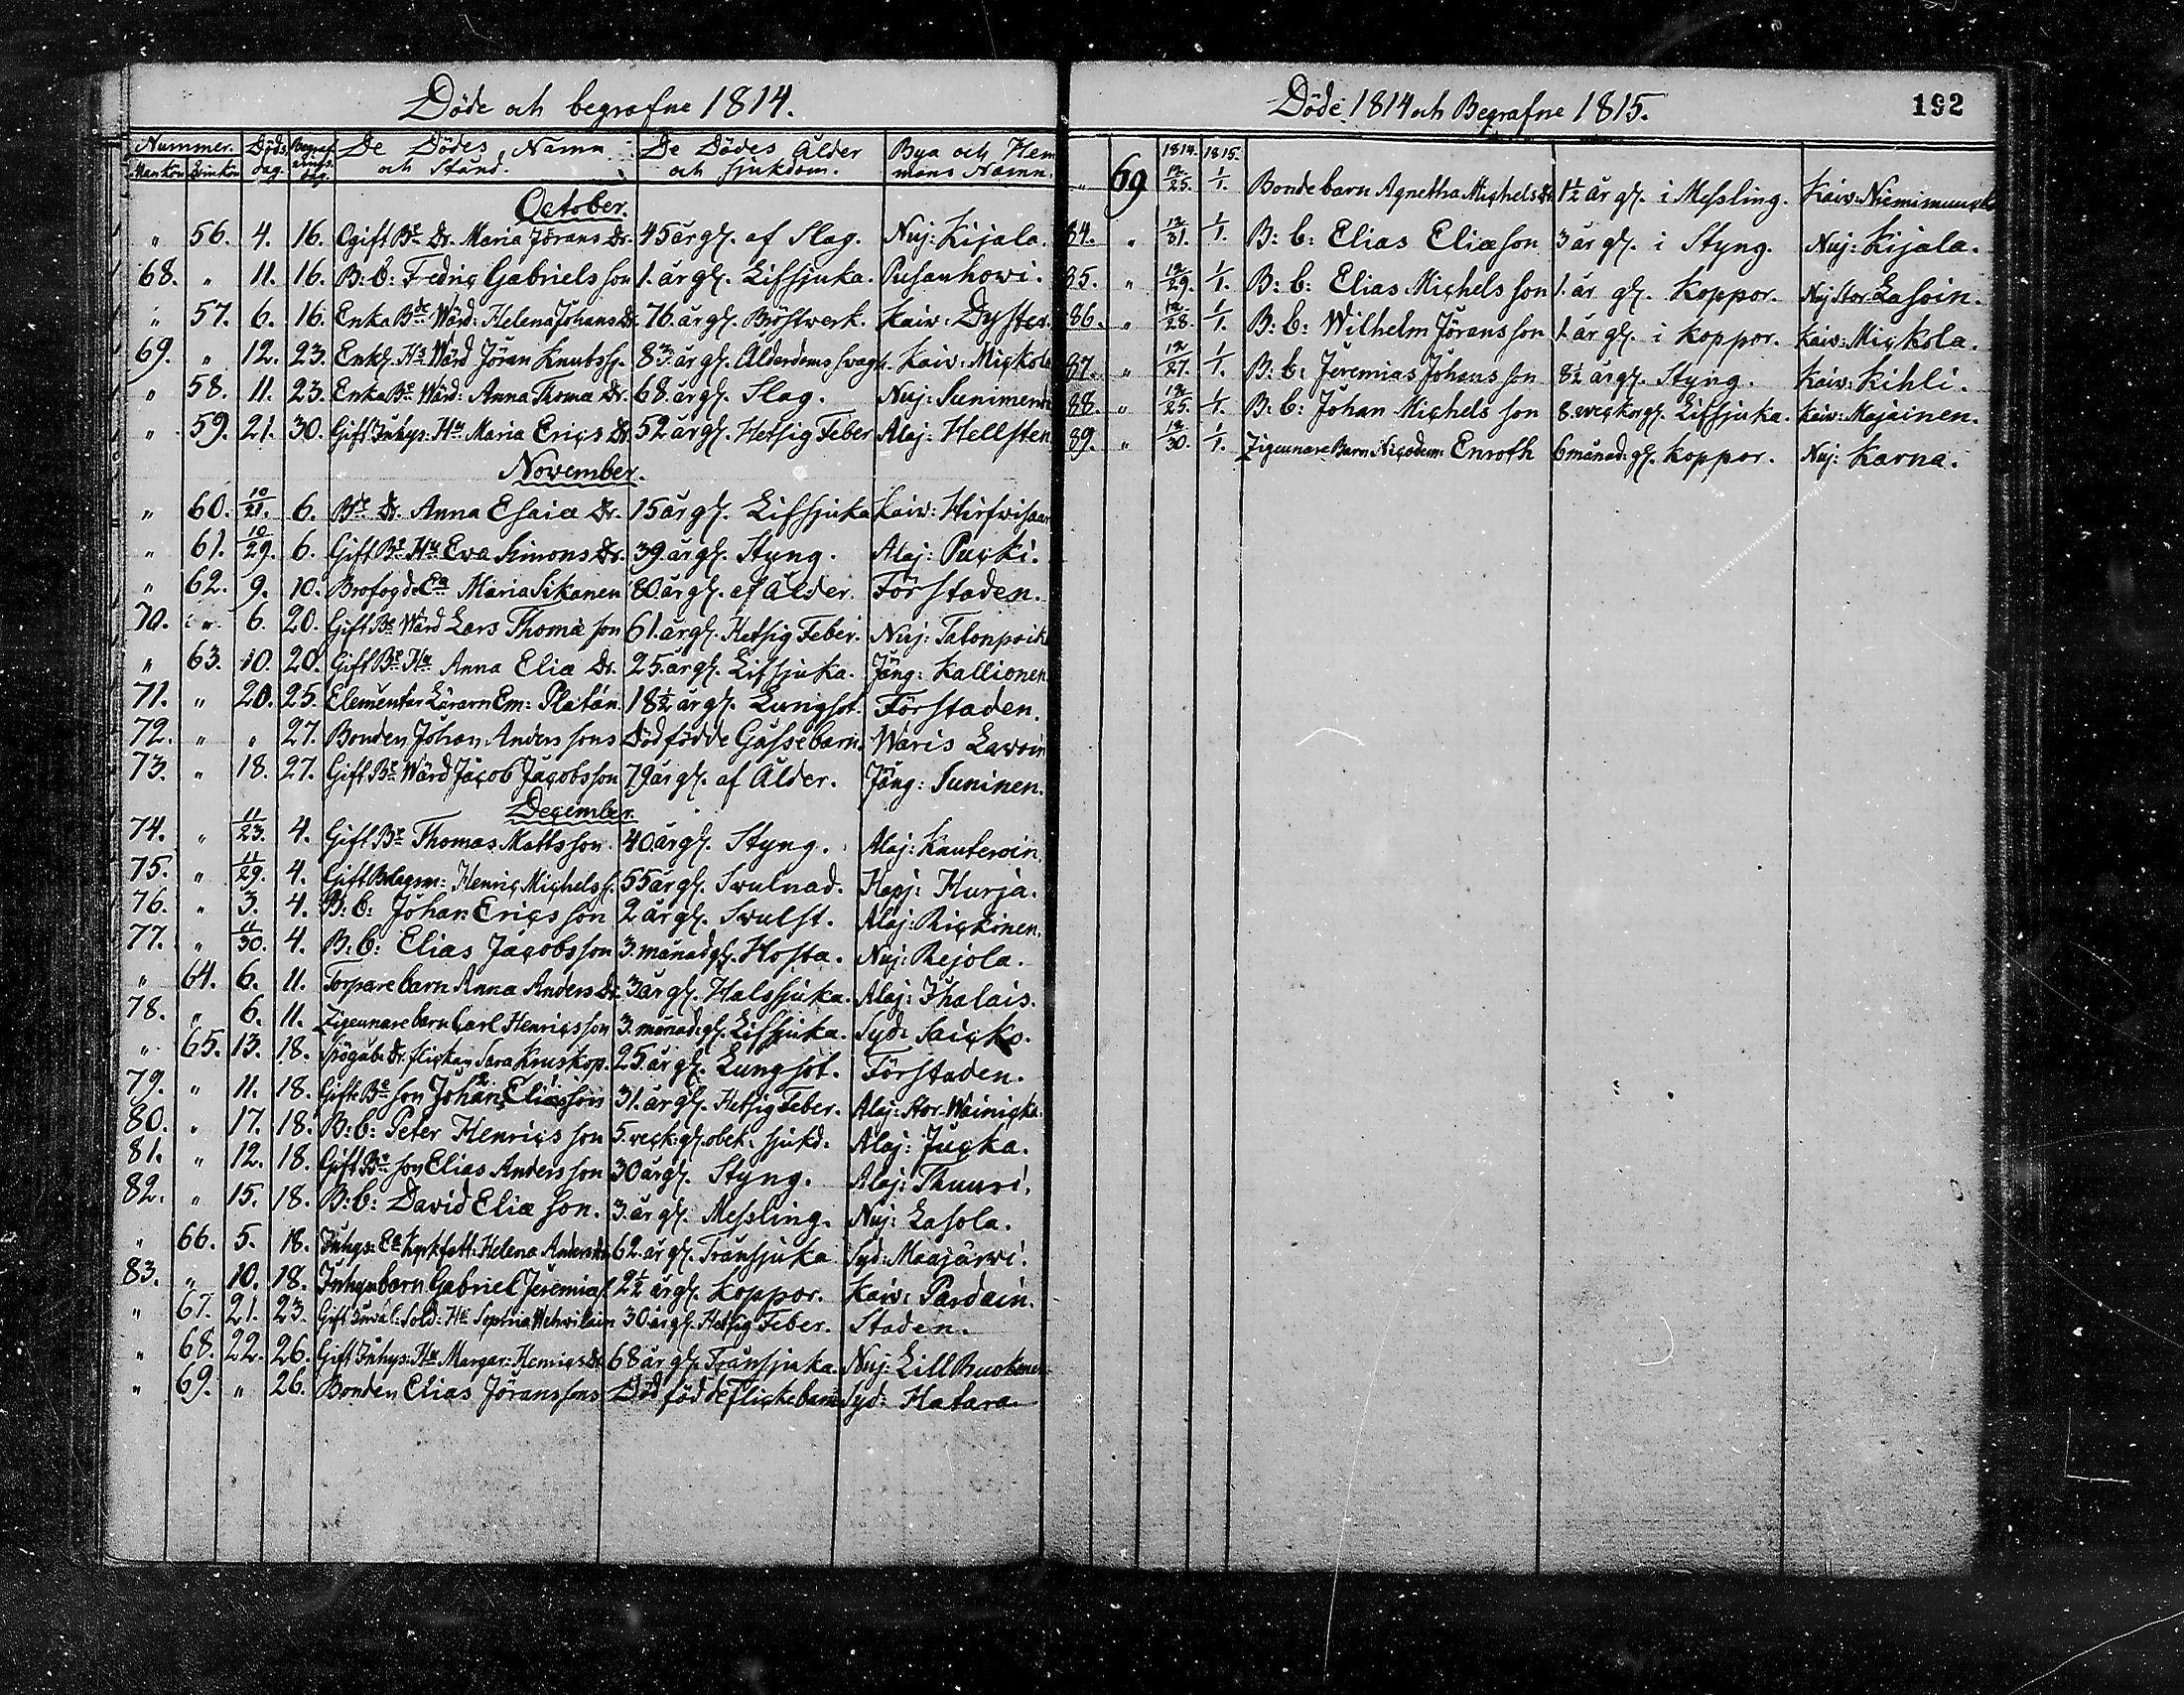 Döde och begrafne 1814.
Nummer. Döds dag. Begrafnings dag. De Dödes Namn och Stånd. De Dödes Ålder och sjukdom. Bya och Hemmans Namn.
Mankön Qvinkön
October.
" 56. 4. 16. Ogift Bde Dr. Maria Jörans Dr. 45 år gl. af Slag. Nuj: Kijala.
68. " 11. 16. B: b: Fedric Gabrielsson 1. år gl. Lifsjuka. Pusanhowi.
" 57. 6. 16. Enka Bde Wärd: Helena Johans Dr. 76. år gl. Bröstwerk. Kaiw: Dyster.
69. " 12. 23. Enkl. Hs Wärd Jöran Knutss. 83. år gl. Ålderdoms swagh. Kaiw: Mickola
" 58. 11. 23. Enka Be Wärd: Anna Thomæ Dr. 68. år gl. Slag. Nuj: Sunimend
" 59. 21. 30. Gift Inhys: Hu Maria Erics Dr. 52 år gl. Hetsig Feber Alaj: Hellsten
November.
" 60. 10/21. 6. Bde Dr. Anna Esaiæ Dr. 15 år gl. Lifsjuka Kaiw: Hirfwisaar
" 61. 10/29. 6. Gift Be Hu Eva Simons Dr. 39. år gl. Styng. Alaj: Pucki.
" 62. 9. 10. Brofogd. Ea Maria Sikanen 80 år gl. af Ålder. Förstaden.
70. " 6. 20. Gift Be Wärd Lars Thomæson 61. år gl. Hetsig Feber. Nuj: Talonpoik
" 63. 10. 20. Gift Be Hu Anna Eliæ Dr. 25. år gl. Lifsjuka. Jäng: Kallionen
71. " 20. 25. Elementar Läraren Em: Platán. 18½ år gl. Lungsot. Förstaden.
72. " " 27. Bonden Johan Anderssons Dödfödde Gåssebarn. Waris Lawoin
73. " 18. 27. Gift Be Wärd Jacob Jacobsson 79 år gl. af Ålder. Jäng: Suninen.
December.
74. " 11/23. 4. Gift Be Thomas Mattsson. 40. år gl. Styng. Alaj: Kauteroin.
75. " 11/29. 4. Gift Bolagsm: Henric Michelss. 55 år gl. Swulnad. Hapj: Hurja.
76. " 3. 4. B: b: Johan Ericsson 2 år gl. Swulst. Alaj: Rickinen.
77. " 11/30. 4. B: b: Elias Jacobsson 3. månad gl. Hosta. Nuj: Rejola.
" 64. 6. 11. Torpare barn Anna Anders Dr. 3 år gl. Halssjuka. Alaj: Ihalais.
78. " 6. 11. Zigeunare barn Carl Henricsson 3. månad. gl. Lifsjuka. Syd: Saicko.
" 65. 13. 18. Dr. flickan Sara Kruskop. 25. år gl. Lungsot. Förstaden.
79. " 11. 18. Gifte Be son Johan Eliæsson 31. år gl. Hetsig Feber. Alaj: Stor-Wainicka.
80. " 17. 18. B: b: Peter Henricsson 5. veck: gl. obek. sjukd. Alaj: Jucka.
81. " 12. 18. Gift Be son Elias Andersson 30 år gl. Styng. Alaj: Thuuri.
82. " 15. 18. B: b: David Eliæson. 3. år gl. Messling. Nuj: Lasola.
" 66. 5. 18. Inhys: Ea Kyrkfatt: Helena Anders dr 62. år gl. Trånsjuka Syd: Maajärwi.
83. " 10. 18. Inhys barn Gabriel Jeremiæs. 2½ år gl. Koppor. Kaiw: Pardain.
" 67. 21. 23. Gift Inval: Sold: Hu Sophia Wehwiläin 30. år gl. Hetsig Feber. Staden.
" 68. 22. 26. Gift Inhys: Hu Margar: Henrics Dr 68 år gl. Trånsjuka. Nuj: Lill Buckmen
" 69. " 26. Bonden Elias Jöranssons Dödfödde Flickebarn Syd: Hatara
Döde 1814 och Begrafne 1815. 192
1814. 1815.
" 69 12/25. 1/1. Bonde barn Agnetha Michels Dr 1½ år gl. i Messling. Kaiw: Niemismuncko
84. " 12/31. 1/1. B: b: Elias Eliæson 3 år gl. i Styng. Nuj: Kijala.
85. " 12/29. 1/1. B: b: Elias Michelsson 1. år gl. Koppor. Nuj Stor Lasoin.
86. " 12/28. 1/1. B: b: Wilhelm Jöransson 1. år gl. i Koppor. Kaiw: Mickola.
87. " 12/27. 1/1. B: b: Jeremias Johansson 8½ år gl. Styng. Kaiw: Kihli.
88. " 12/25. 1/1. B: b: Johan Michelsson 8. weckor gl. Lifsjuka. Kaiw: Majainen.
89. " 12/30. 1/1. Zigeunare Barn Nicodem: Enroth 6 månad: gl. Koppor. Nuj: Karna.